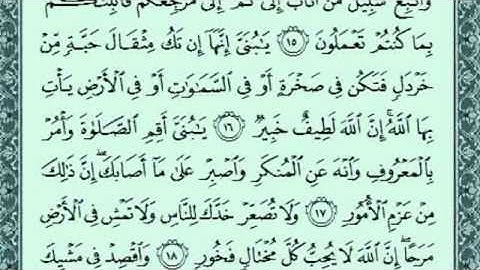 وَاتَّبِعْ سَبِيلَ مَنْ أَنَابَ إِلَىَّ ثُمَّ إِلَىَّ مَرْجِعُكُمْ فَأُنَبِّئُكُم
بِمَا كُنتُمْ تَعْمَلُونَ ١٥ يَٰبُنَىَّ إِنَّهَآ إِن تَكُ مِثْقَالَ حَبَّةٍ مِّنْ
خَرْدَلٍ فَتَكُن فِى صَخْرَةٍ أَوْ فِى ٱلسَّمَٰوَٰتِ أَوْ فِى ٱلْأَرْضِ يَأْتِ
بِهَا ٱللَّهُ ۚ إِنَّ ٱللَّهَ لَطِيفٌ خَبِيرٌ ١٦ يَٰبُنَىَّ أَقِمِ ٱلصَّلَوٰةَ وَأْمُرْ
بِٱلْمَعْرُوفِ وَٱنْهَ عَنِ ٱلْمُنكَرِ وَٱصْبِرْ عَلَىٰ مَآ أَصَابَكَ ۖ إِنَّ ذَٰلِكَ
مِنْ عَزْمِ ٱلْأُمُورِ ١٧ وَلَا تُصَعِّرْ خَدَّكَ لِلنَّاسِ وَلَا تَمْشِ فِى ٱلْأَرْضِ
مَرَحًا ۖ إِنَّ ٱللَّهَ لَا يُحِبُّ كُلَّ مُخْتَالٍ فَخُورٍ ١٨ وَٱقْصِدْ فِى مَشْيِكَ